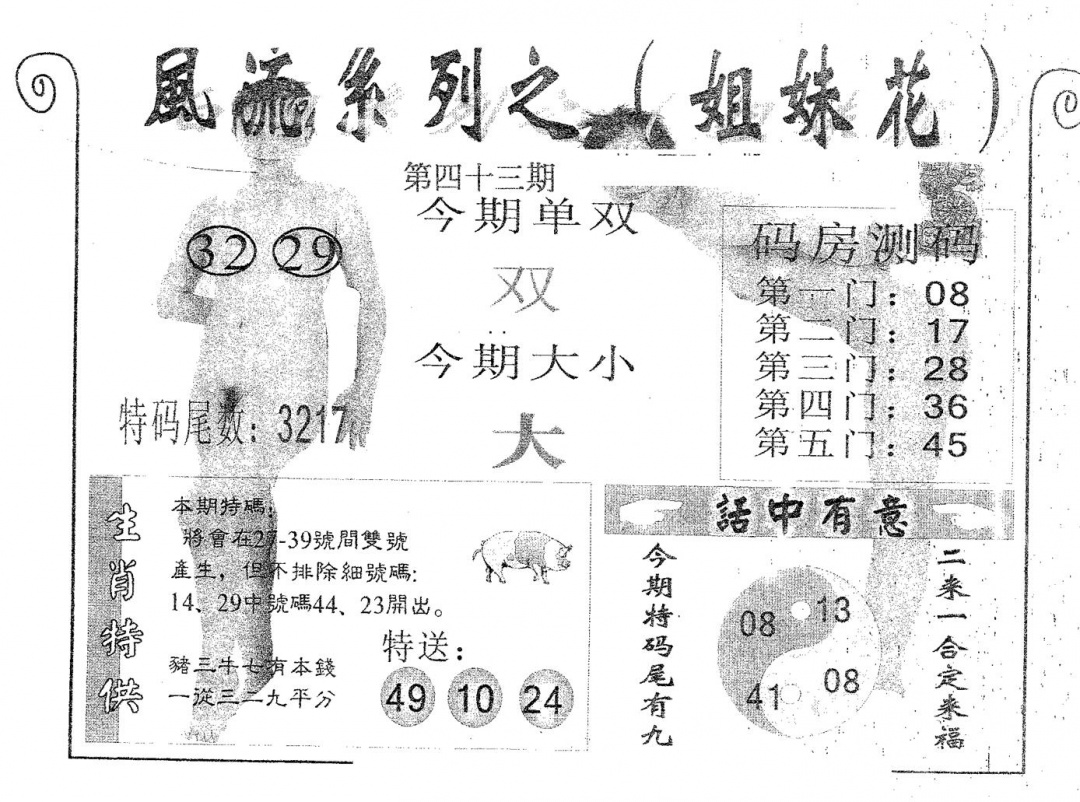 風流系列之（姐妹花）
第四十三期
今期单双
双
今期大小
大
32 29
特码尾数：3217
码房测码
第一门：08
第二门：17
第三门：28
第四门：36
第五门：45
生肖特供
本期特碼：
將會在27-39號間雙號
產生，但不排除細號碼：
14、29中號碼44、23開出。
豬三牛七有本錢
一從三二九平分
特送：
49 10 24
話中有意
今期特码尾有九
08 13
41 08
二来一合定来福